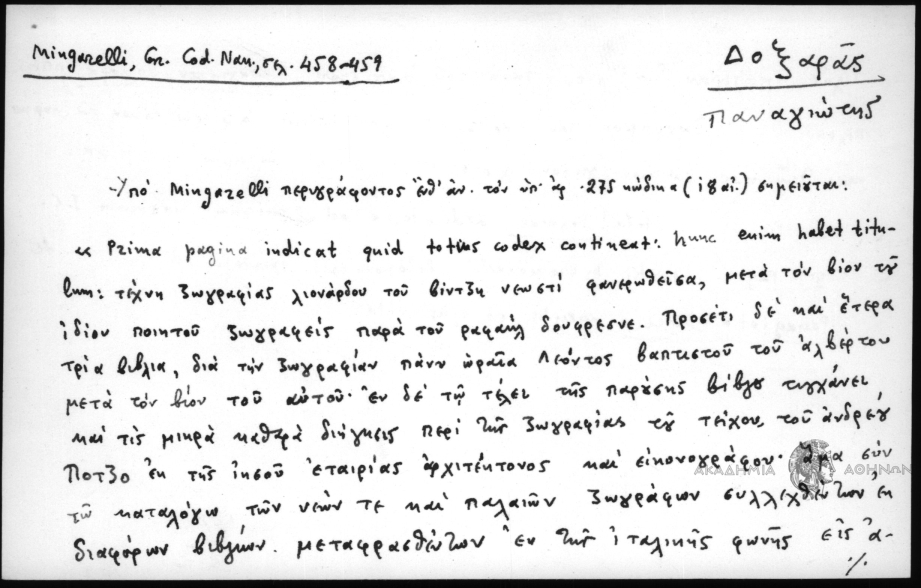 Mingarelli, Gr. Cod. Nan., σελ. 458-459
Δοξαρᾶς
Παναγιώτης
Ὑπό Mingarelli περιγράφοντος ἔνθ' ἀν. τόν ὑπ' ἀρ. 275 κώδικα (ιθ αἰ.) σημειοῦται:
« Prima pagina indicat quid totus codex contineat: hunc enim habet titu-
lum: τέχνη ζωγραφίας λιονάρδου τοῦ βίντζη νεωστί φανερωθεῖσα, μετά τόν βίον τοῦ
ἰδίου ποιητοῦ ζωγραφεῖς παρά τοῦ ραφαήλ δουφρεσνε. Προσέτι δέ καί ἕτερα
τρία βιβλια, διά τήν ζωγραφίαν πάνυ ὡραῖα Λεόντος βαπτιστοῦ τοῦ ἀλβέρτου
μετά τόν βίον τοῦ αὐτοῦ· ἐν δέ τῷ τέλει τῆς παρούσης βίβλου τυγχάνει
καί τίς μικρά καθαρά διήγησις περί τῆς ζωγραφίας τοῦ τείχου, τοῦ ἀνδρέου
Ποτζο ἐκ τῆς ἰησοῦ ἑταιρίας ἀρχιτέκτονος καί εἰκονογράφου· ἅμα σύν
τῷ καταλόγῳ τῶν νεών τε καί παλαιῶν ζωγράφων συλλεχθέντων ἐκ
διαφόρων βιβλίων. μεταφρασθέντων ἐκ τῆς ἰταλικῆς φωνῆς εἰς ἁ-
./.
ΑΚΑΔΗΜΙΑ ΑΘΗΝΩΝ